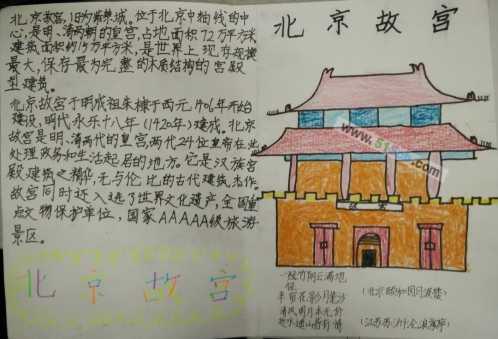 北京故宫,旧为紫禁城。位于北京中轴线的中
心,是明、清两朝的皇宫,占地面积72万平方米
建筑面积约15万平方米,是世界上现存规模
最大,保存最为完整的木质结构的宫殿
型建筑。
北京故宫于明成祖朱棣于西元1406年开始
建设,明代永乐十八年(1420年)建成。北京
故宫是明、清两代的皇宫,两代24位皇帝在此
处理政务和生活起居的地方。它是汉族宫
殿建筑之精华,无与伦比的古代建筑杰作。
故宫同时还入选了世界文化遗产,全国重
点文物保护单位,国家AAAAA级旅游
景区。
北京故宫
北京故宫
www.51
.com
半窗花影月
清风明月本无价
近水远山皆有情
(北京颐和园月波楼)
(江苏苏州沧浪亭)